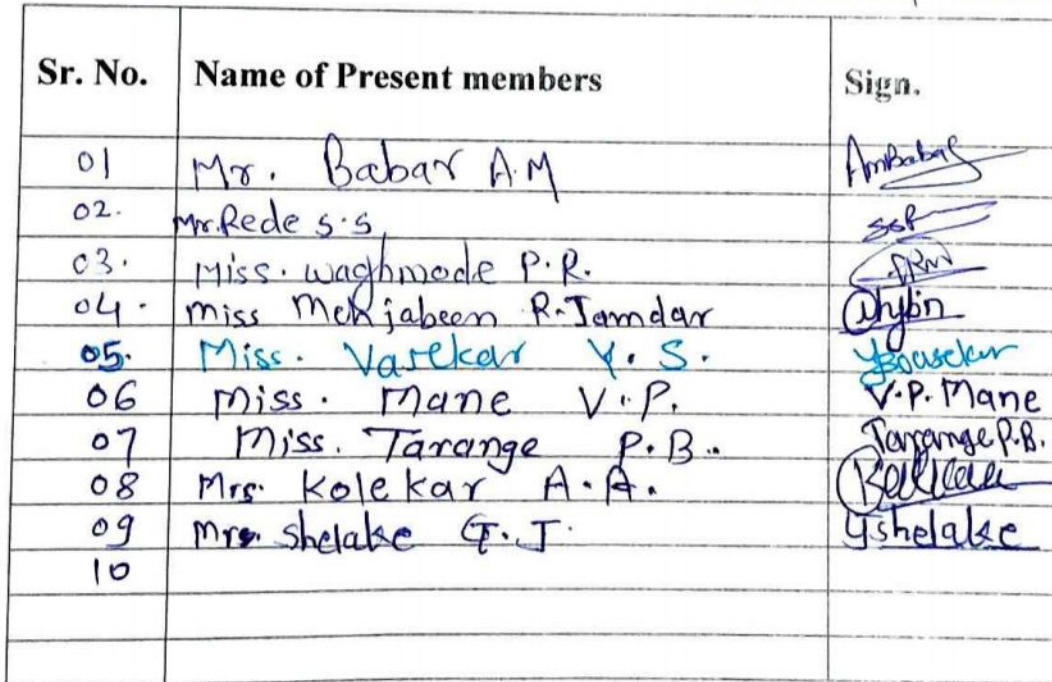 Sr. No. Name of Present members Sign.
01 Mr. Babar A.M AmBabar
02. Mr. Rede S.S. SSR
03. Miss. Waghmode P.R.
04. Miss Mehjabeen R. Jamdar
05. Miss. Vasekar Y. S.
06 Miss. Mane V.P. V.P. Mane
07 Miss. Tarange P.B. Tarange P.B.
08 Mrs. Kolekar A.A.
09 Mrs. Shelake G.J. Gshelake
10